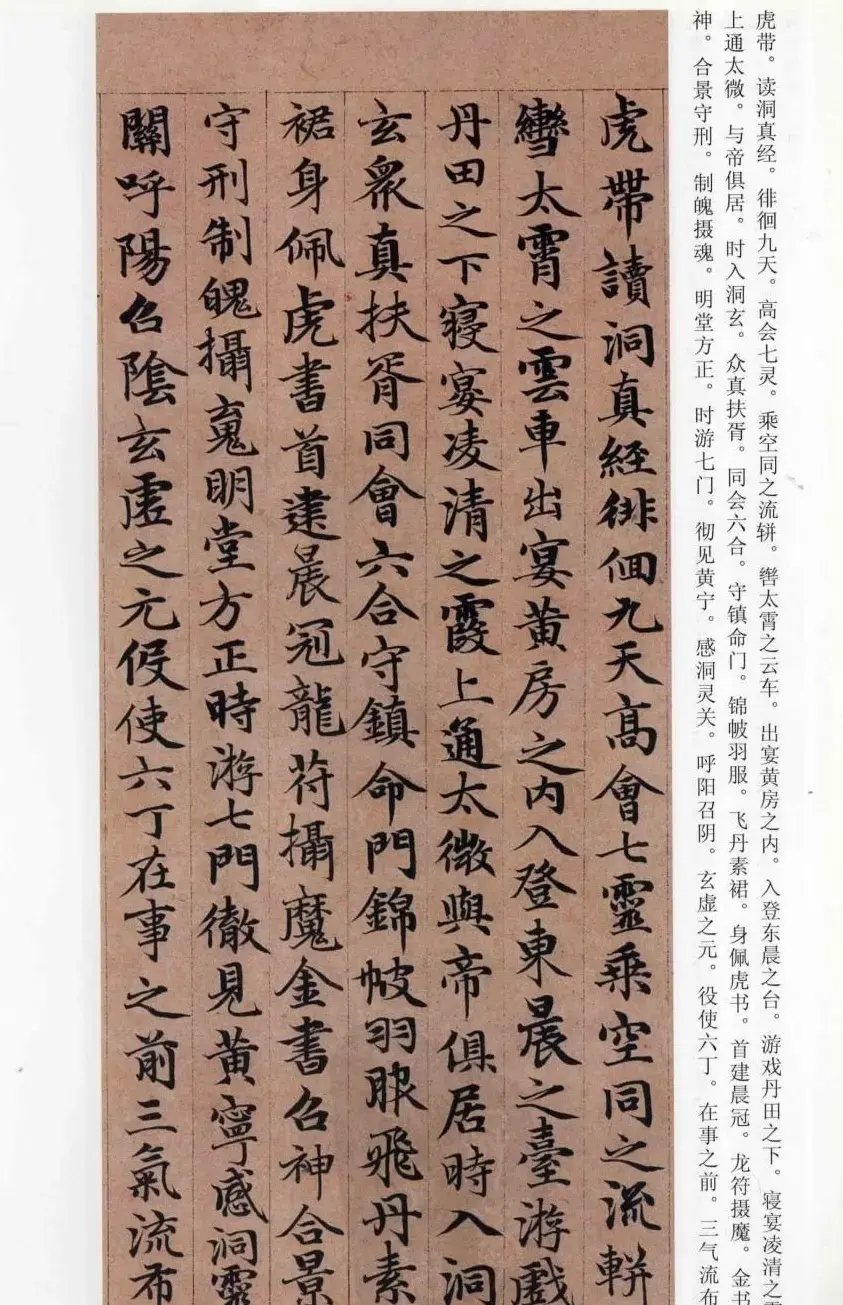 虎带。读洞真经。徘徊九天。高会七灵。乘空同之流𫐌。辔太霄之云车。出宴黄房之内。入登东晨之台。游戏丹田之下。寝宴凌清之
上通太微。与帝俱居。时入洞玄。众真扶胥。同会六合。守镇命门。锦帔羽服。飞丹素裙。身佩虎书。首建晨冠。龙符摄魔。金书
神。合景守刑。制魄摄魂。明堂方正。时游七门。彻见黄宁。感洞灵关。呼阳召阴。玄虚之元。役使六丁。在事之前。三气流布
虎帶讀洞真經徘徊九天高會七靈乘空同之流軿
轡太霄之雲車出宴黃房之内入登東晨之臺游戲
丹田之下寝宴凌清之霞上通太微與帝俱居時入洞
玄衆真扶胥同會六合守鎮命門錦帔羽服飛丹素
裙身佩虎書首建晨冠龍符攝魔金書召神合景
守刑制魄攝魂明堂方正時游七門徹見黃寧感洞靈
關呼陽召陰玄虛之元役使六丁在事之前三氣流布